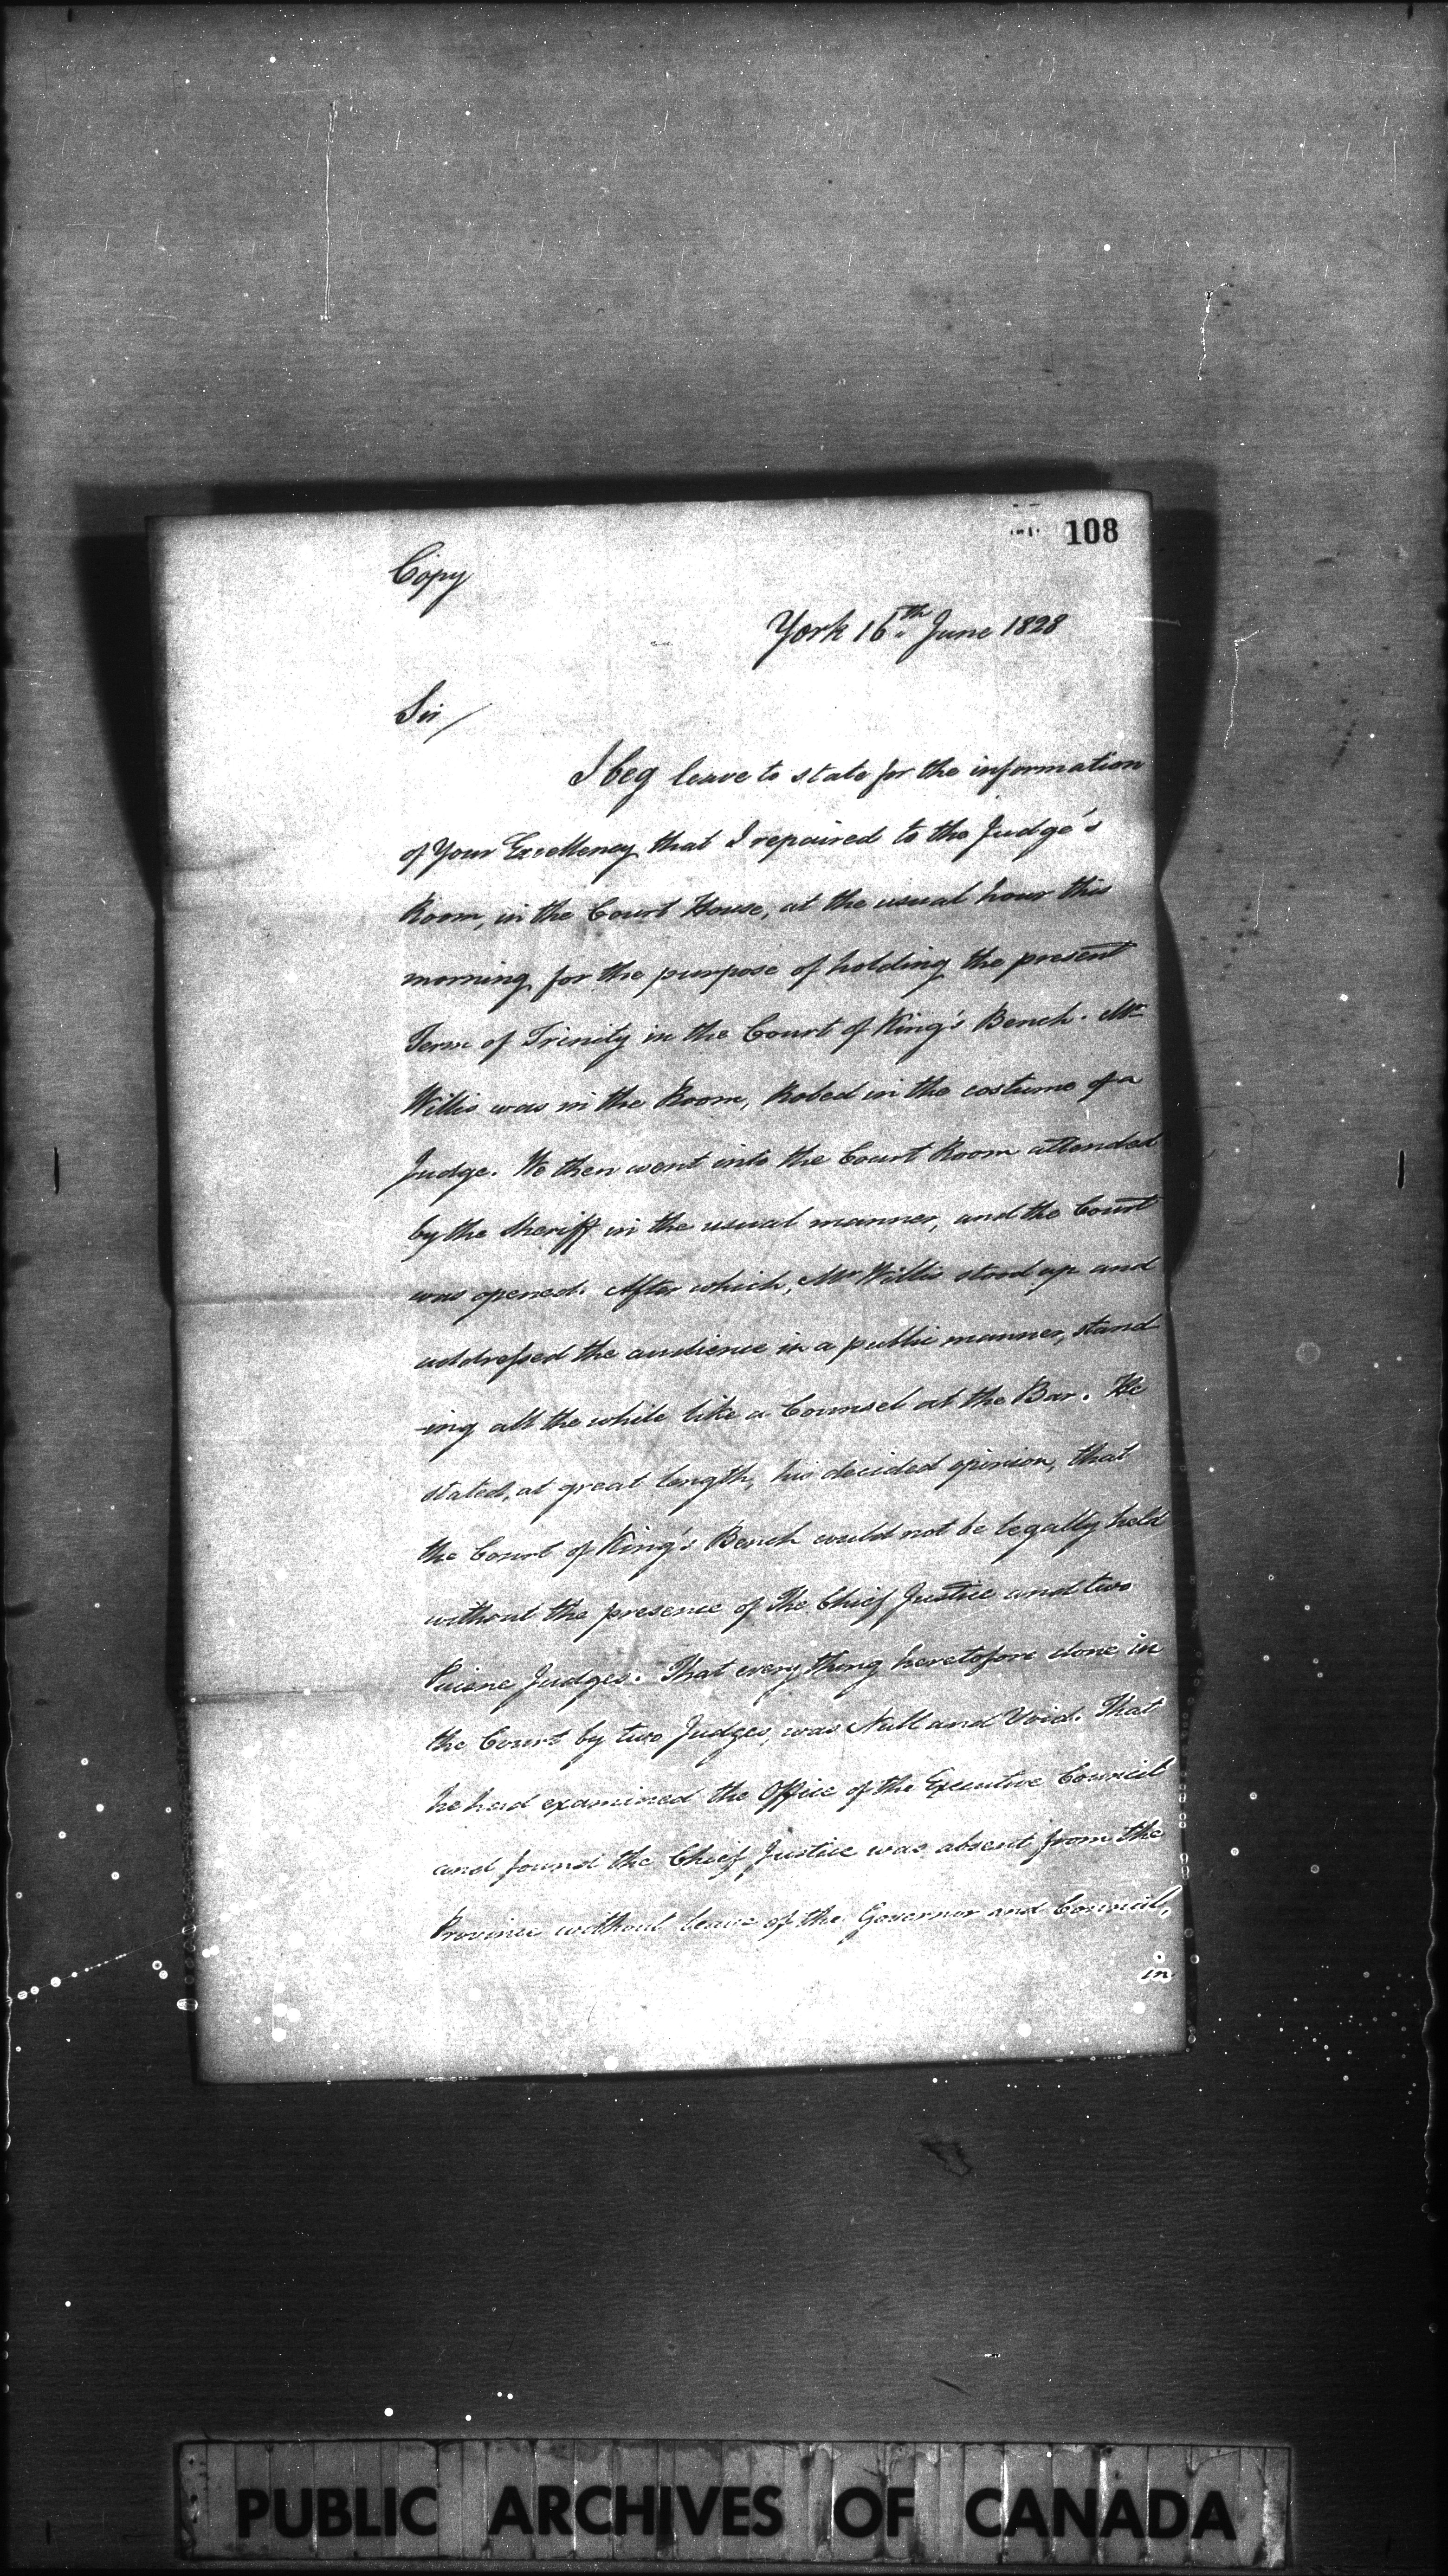 108
Copy
York 16th June 1828
Sir/
I beg leave to state for the information
of Your Excellency that I repaired to the Judge's
Room, in the Court House, at the usual hour this
morning for the purpose of holding the present
Term of Trinity in the Court of King's Bench. Mr
Willis was in the Room, Robed in the costume of a
Judge. We then went into the Court Room attended
by the Sheriff in the usual manner, and the Court
was opened. After which, Mr Willis stood up and
addressed the audience in a public manner, stand
-ing all the while like a Counsel at the Bar. He
stated, at great length, his decided opinion, that
the Court of King's Bench could not be legally held
without the presence of The Chief Justice and two
Puisne Judges. That every thing heretofore done in
the Court by two Judges, was Null and Void. That
he had examined the Office of the Executive Council
and found the Chief Justice was absent from the
Province without leave of the Governor and Council,
in
PUBLIC ARCHIVES OF CANADA